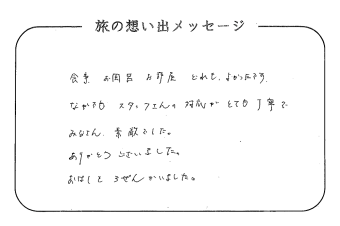 旅の想い出メッセージ
食事 お風呂 お部屋 とれも、よかったです。
なかでも スタッフさんの 対応が とても 丁寧で
みなさん、素敵でした。
ありがとう ございました。
おはしを ろぜんかいました。